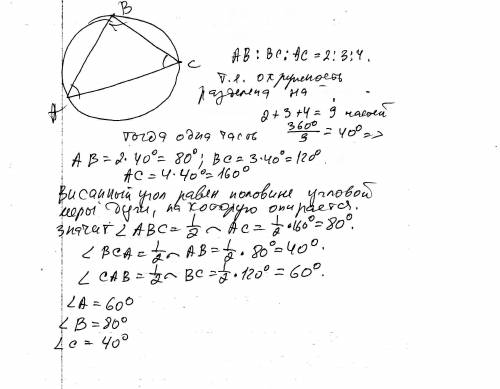 B
C
A
AB : BC : AC = 2 : 3 : 4.
т.е. окружность
разделена на
2 + 3 + 4 = 9 частей
тогда одна часть 360°/9 = 40° =>
AB = 2·40° = 80°; BC = 3·40° = 120°.
AC = 4·40° = 160°
Вписанный угол равен половине угловой
меры дуги, на которую опирается.
значит ∠ABC = 1/2 ◡ AC = 1/2 · 160° = 80°.
∠BCA = 1/2 ◡ AB = 1/2 · 80° = 40°.
∠CAB = 1/2 ◡ BC = 1/2 · 120° = 60°.
∠A = 60°
∠B = 80°
∠C = 40°